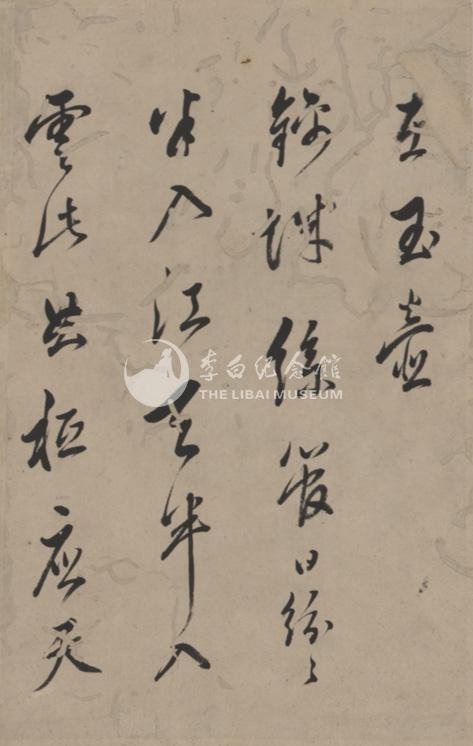 在玉壺
錦城絲管日紛〻
半入江風半入
雲此曲祇應天
李白纪念館
THE LIBAI MUSEUM